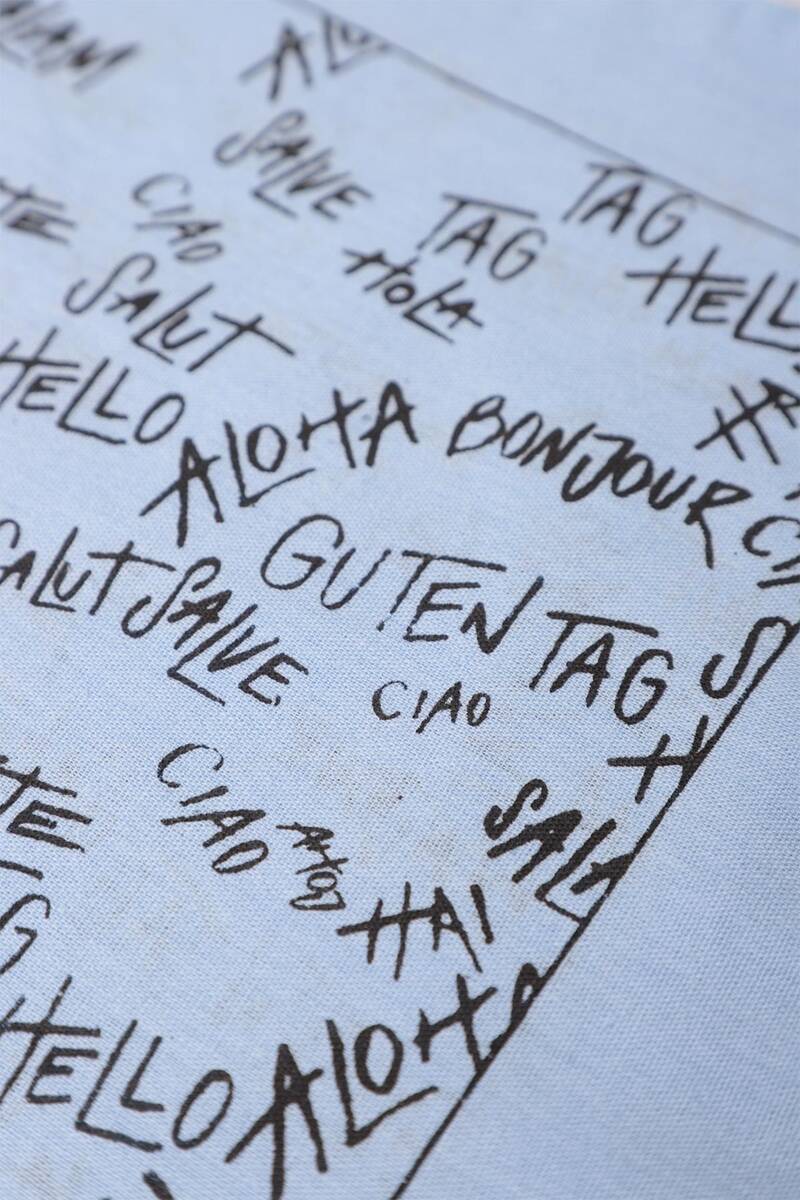 ALO
SALVE
TAG
CIAO
TAG
HOLA
HELL
SALUT
HELLO
ALOHA
BONJOUR
GUTEN TAG
SALUT
SALVE
CIAO
CIAO
SAL
HAI
HELLO
ALOHA